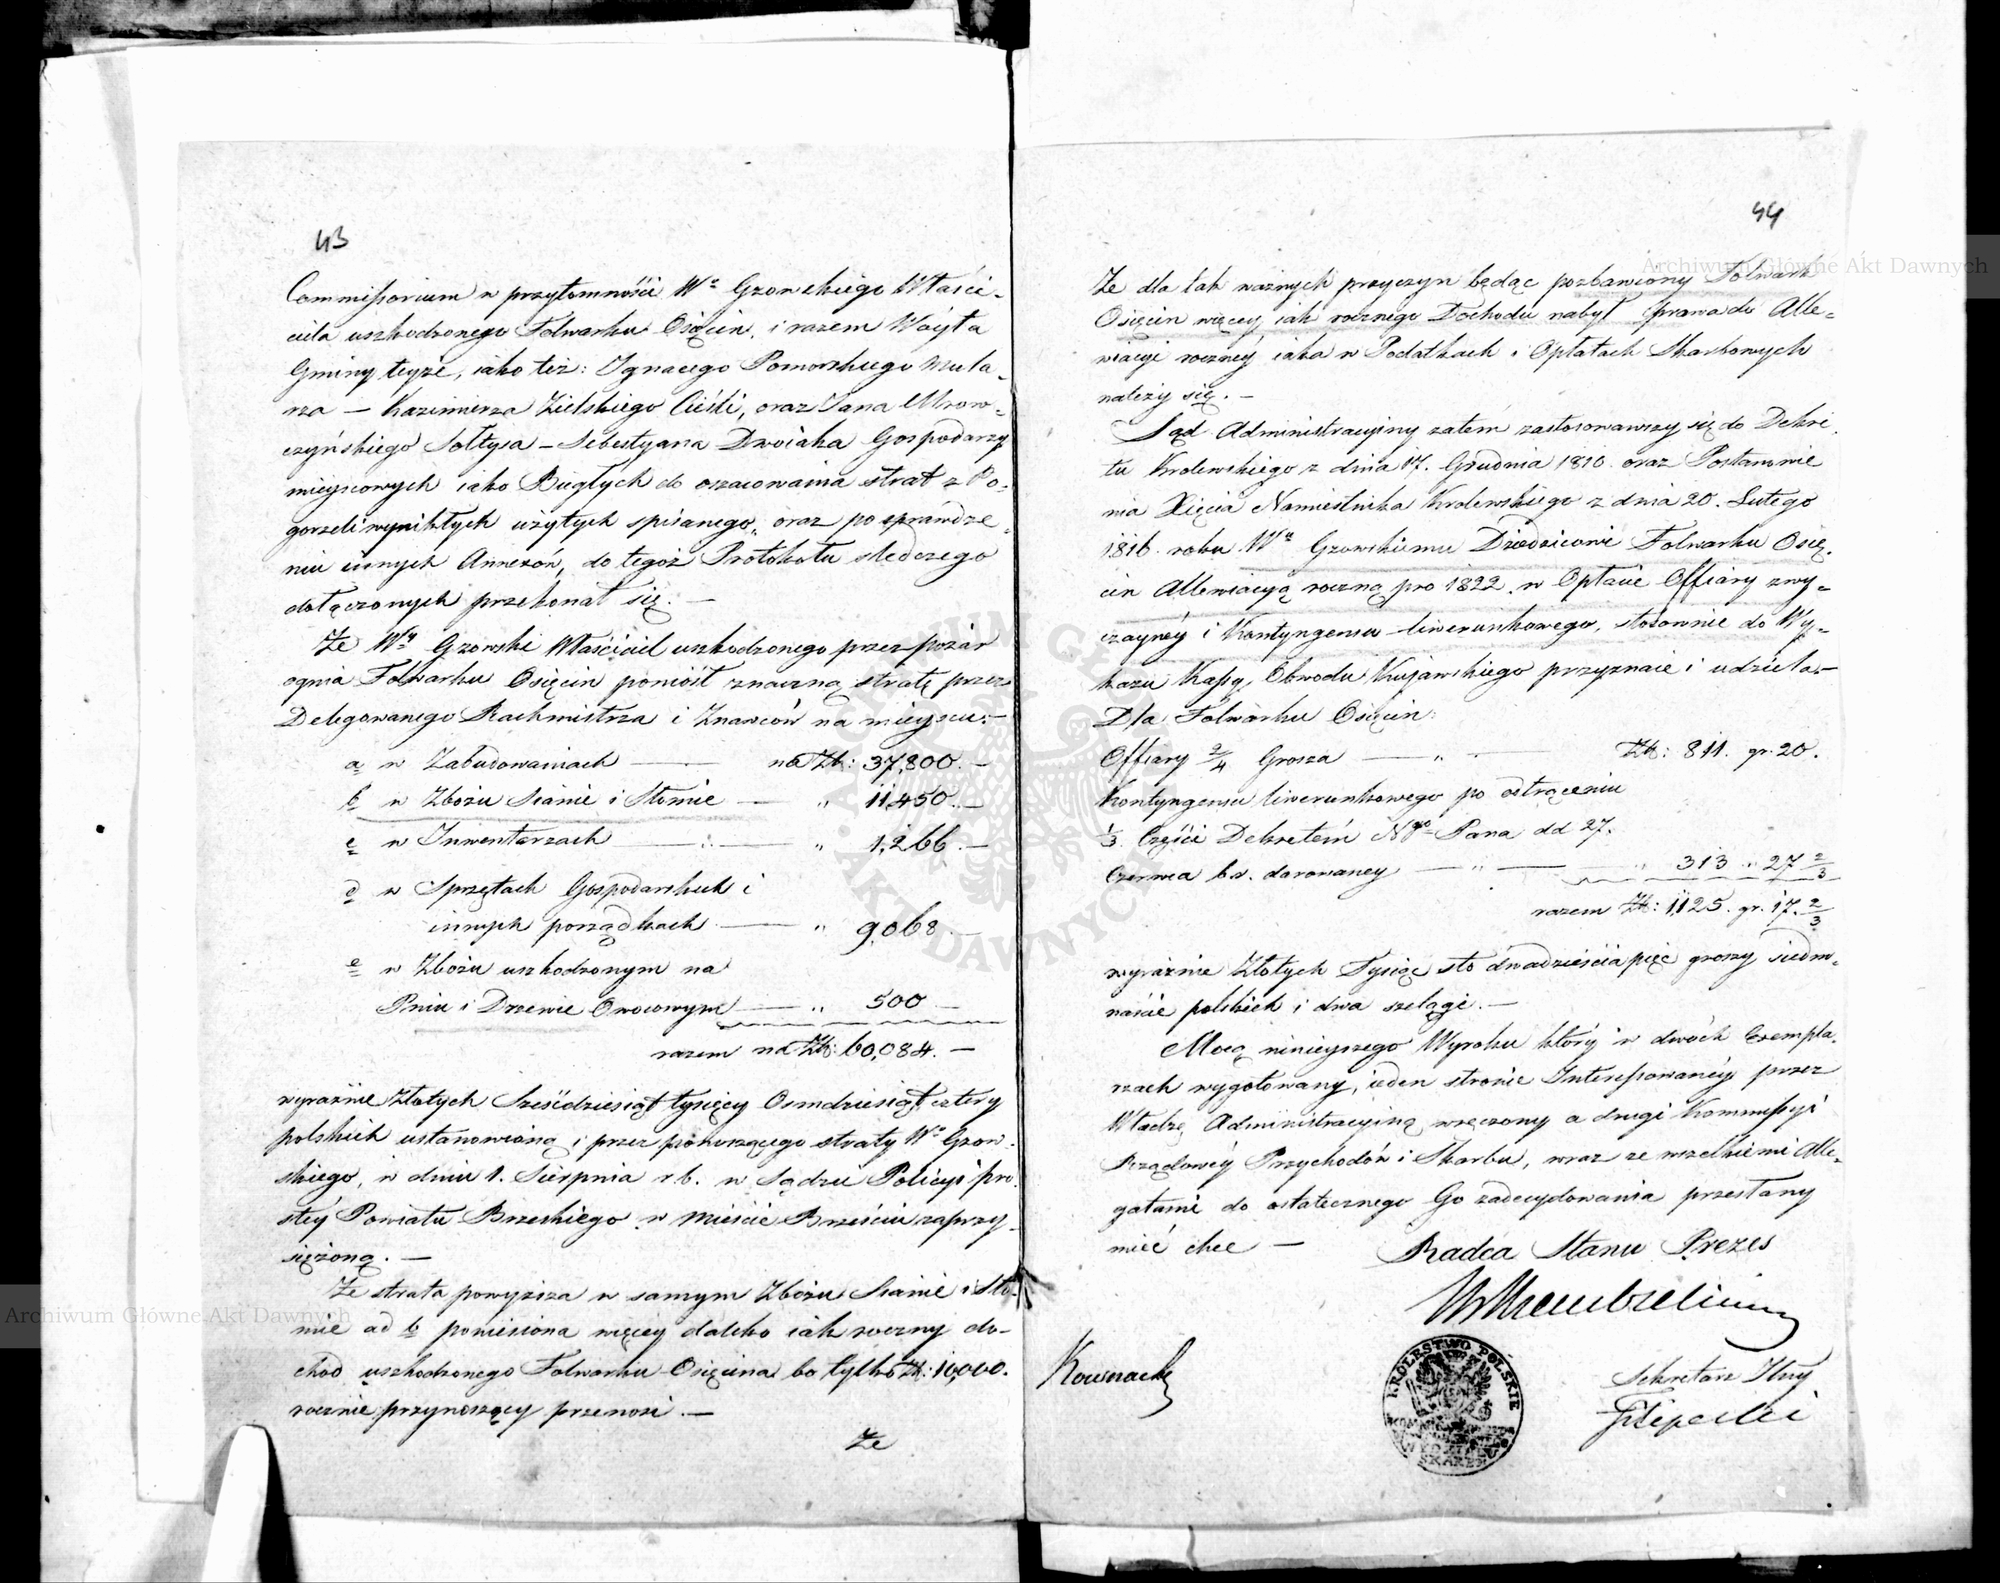 43
Commissorium w przytomności Wo Gzowskiego Właści-
ciela uszkodzonego Folwarku Osięcin, i razem Woyta
Gminy teyże, iako też: Ignacego Pomorskiego mula-
rza — Kazimierza Zielskiego Cieśli, oraz Jana Mrow-
czyńskiego Sołtysa — Sebestyana Dwoiaka Gospodarzy
mieyscowych iako Biegłych do oszacowania strat z Po-
gorzeli wynikłych użytych spisanego, oraz po sprawdze-
niu innych Annexów, do tegoż Protokołu śledczego
dołączonych przekonał się. —
Że Wy Gzowski Właściciel uszkodzonego przez pożar
ognia Folwarku Osięcin poniósł znaczną stratę przez
Delegowanego Rachmistrza i Znawców na mieyscu: —
a w Zabudowaniach — na Zł: 37,800. —
b w Zbożu Sianie i Słomie — " 11,450. —
c w Inwentarzach — " 1,266. —
d w Sprzętach Gospodarskich i
innych porządkach — " 9,068 —
e w Zbożu uszkodzonym na
Pniu i Drzewie Owocowym — " 500 —
razem na Zł: 60,084. —
wyraźnie Złotych Sześćdziesiąt tysięcy Osmdziesiąt cztery
polskich ustanowioną i przez ponoszącego straty Wo Gzow-
skiego, w dniu 1. Sierpnia r.b. w Sądzie Policyi pro-
stey Powiatu Brzeskiego w Mieście Brześciu zaprzy-
siężoną. —
Że strata powyższa w samym Zbożu Sianie i Sło-
mie ad b poniesiona więcey daleko iak roczny do-
chód uszkodzonego Folwarku Osięcina bo tylko Zł: 10,000.
rocznie przynoszący przenosi. —
Że
44
Że dla tak ważnych przyczyn będąc pozbawiony Folwark
Osięcin więcey iak rocznego Dochodu nabył prawa do Alle-
wiacyi roczney iaka w Podatkach i Opłatach Skarbowych
należy się. —
Sąd Administracyiny zatem zastosowawszy się do Dekre-
tu Krolewskiego z dnia 17. Grudnia 1810. oraz Postanowie
nia Xięcia Namiestnika Krolewskiego z dnia 20. Lutego
1816. roku Wu Gzowskiemu Dziedzicowi Folwarku Osię-
cin Allewiacyą roczną pro 1822. w Opłacie Offiary zwy-
czayney i Kontyngensu liwerunkowego, stosownie do Wy-
kazu Kassy Obwodu Kujawskiego przyznaie i udziela. —
Dla Folwarku Osięcin:
Offiary 2/4 Grosza — " — Zł: 811. gr. 20.
Kontyngensu liwerunkowego po odtrąceniu
1/3 Części Dekretem Ngo Pana dd 27.
Czerwca b.r. darowaney — " — " 313 " 27 2/3
razem Zł: 1,125. gr. 17. 2/3
wyraźnie Złotych Tysiąc sto dwadzieścia pięć groszy siedm-
naście polskich i dwa szelągi. —
Mocą ninieyszego Wyroku który w dwóch Exempla-
rzach wygotowany, ieden stronie Interessowaney przez
Władzę Administracyiną wręczony a drugi Kommissyi
Rządowey Przychodów i Skarbu, wraz ze wszelkiemi Alle-
gatami do ostatecznego Go zadecydowania przesłany
mieć chce —
Radca Stanu Prezes
Sekretarz Jlny
Filipecki
KROLESTWO POLSKIE
Archiwum Główne Akt Dawnych
Archiwum Główne Akt Dawnych
ARCHIWUM GŁÓWNE AKT DAWNYCH